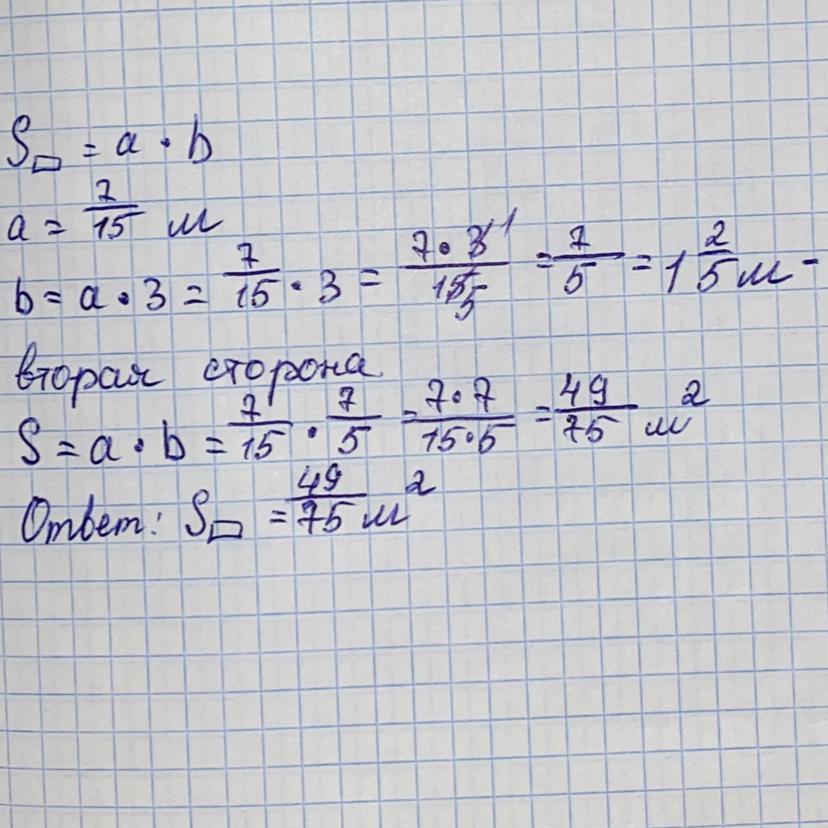 S▭ = a · b
a = 7/15 м
b = a · 3 = 7/15 · 3 = 7·3 1/15 5 = 7/5 = 1 2/5 м -
вторая сторона
S = a · b = 7/15 · 7/5 = 7·7/15·5 = 49/75 м²
Ответ: S▭ = 49/75 м²